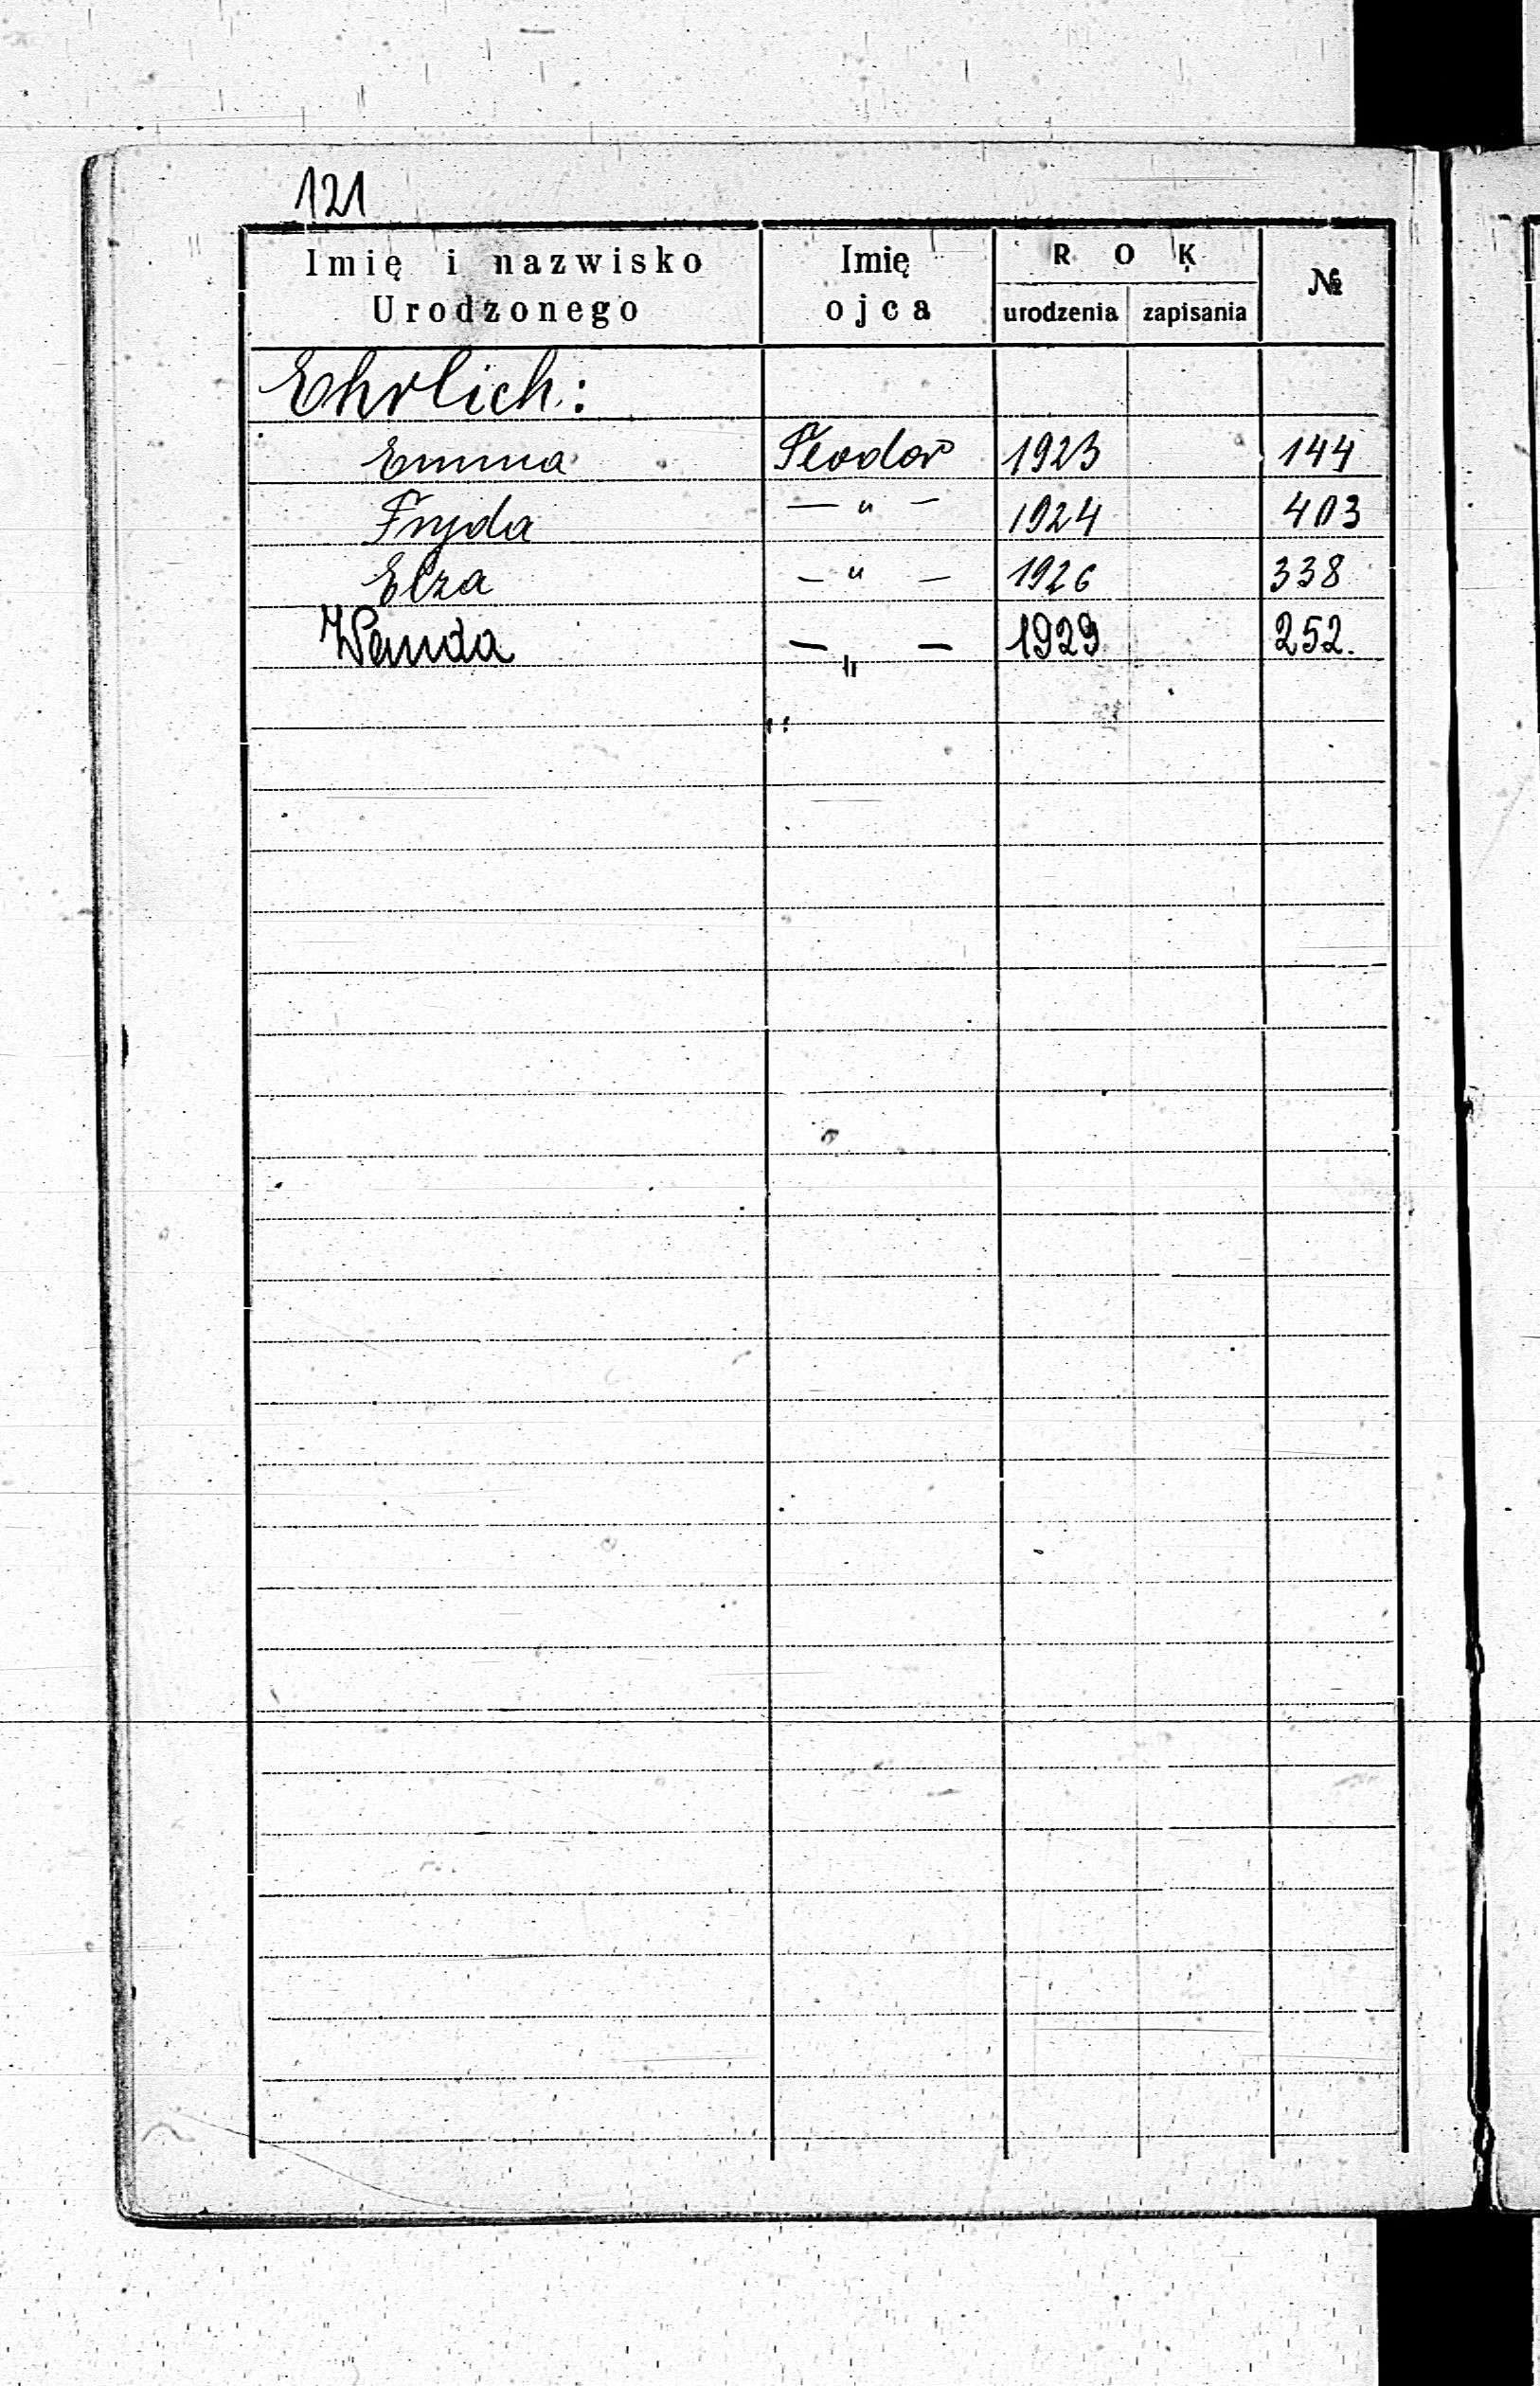 121
Imię i nazwisko Urodzonego Imię ojca ROK urodzenia zapisania №
Ehrlich:
Emma Teodor 1923 144
Fryda — „ — 1924 403
Elza — „ — 1926 338
Wanda — „ — 1929 252.